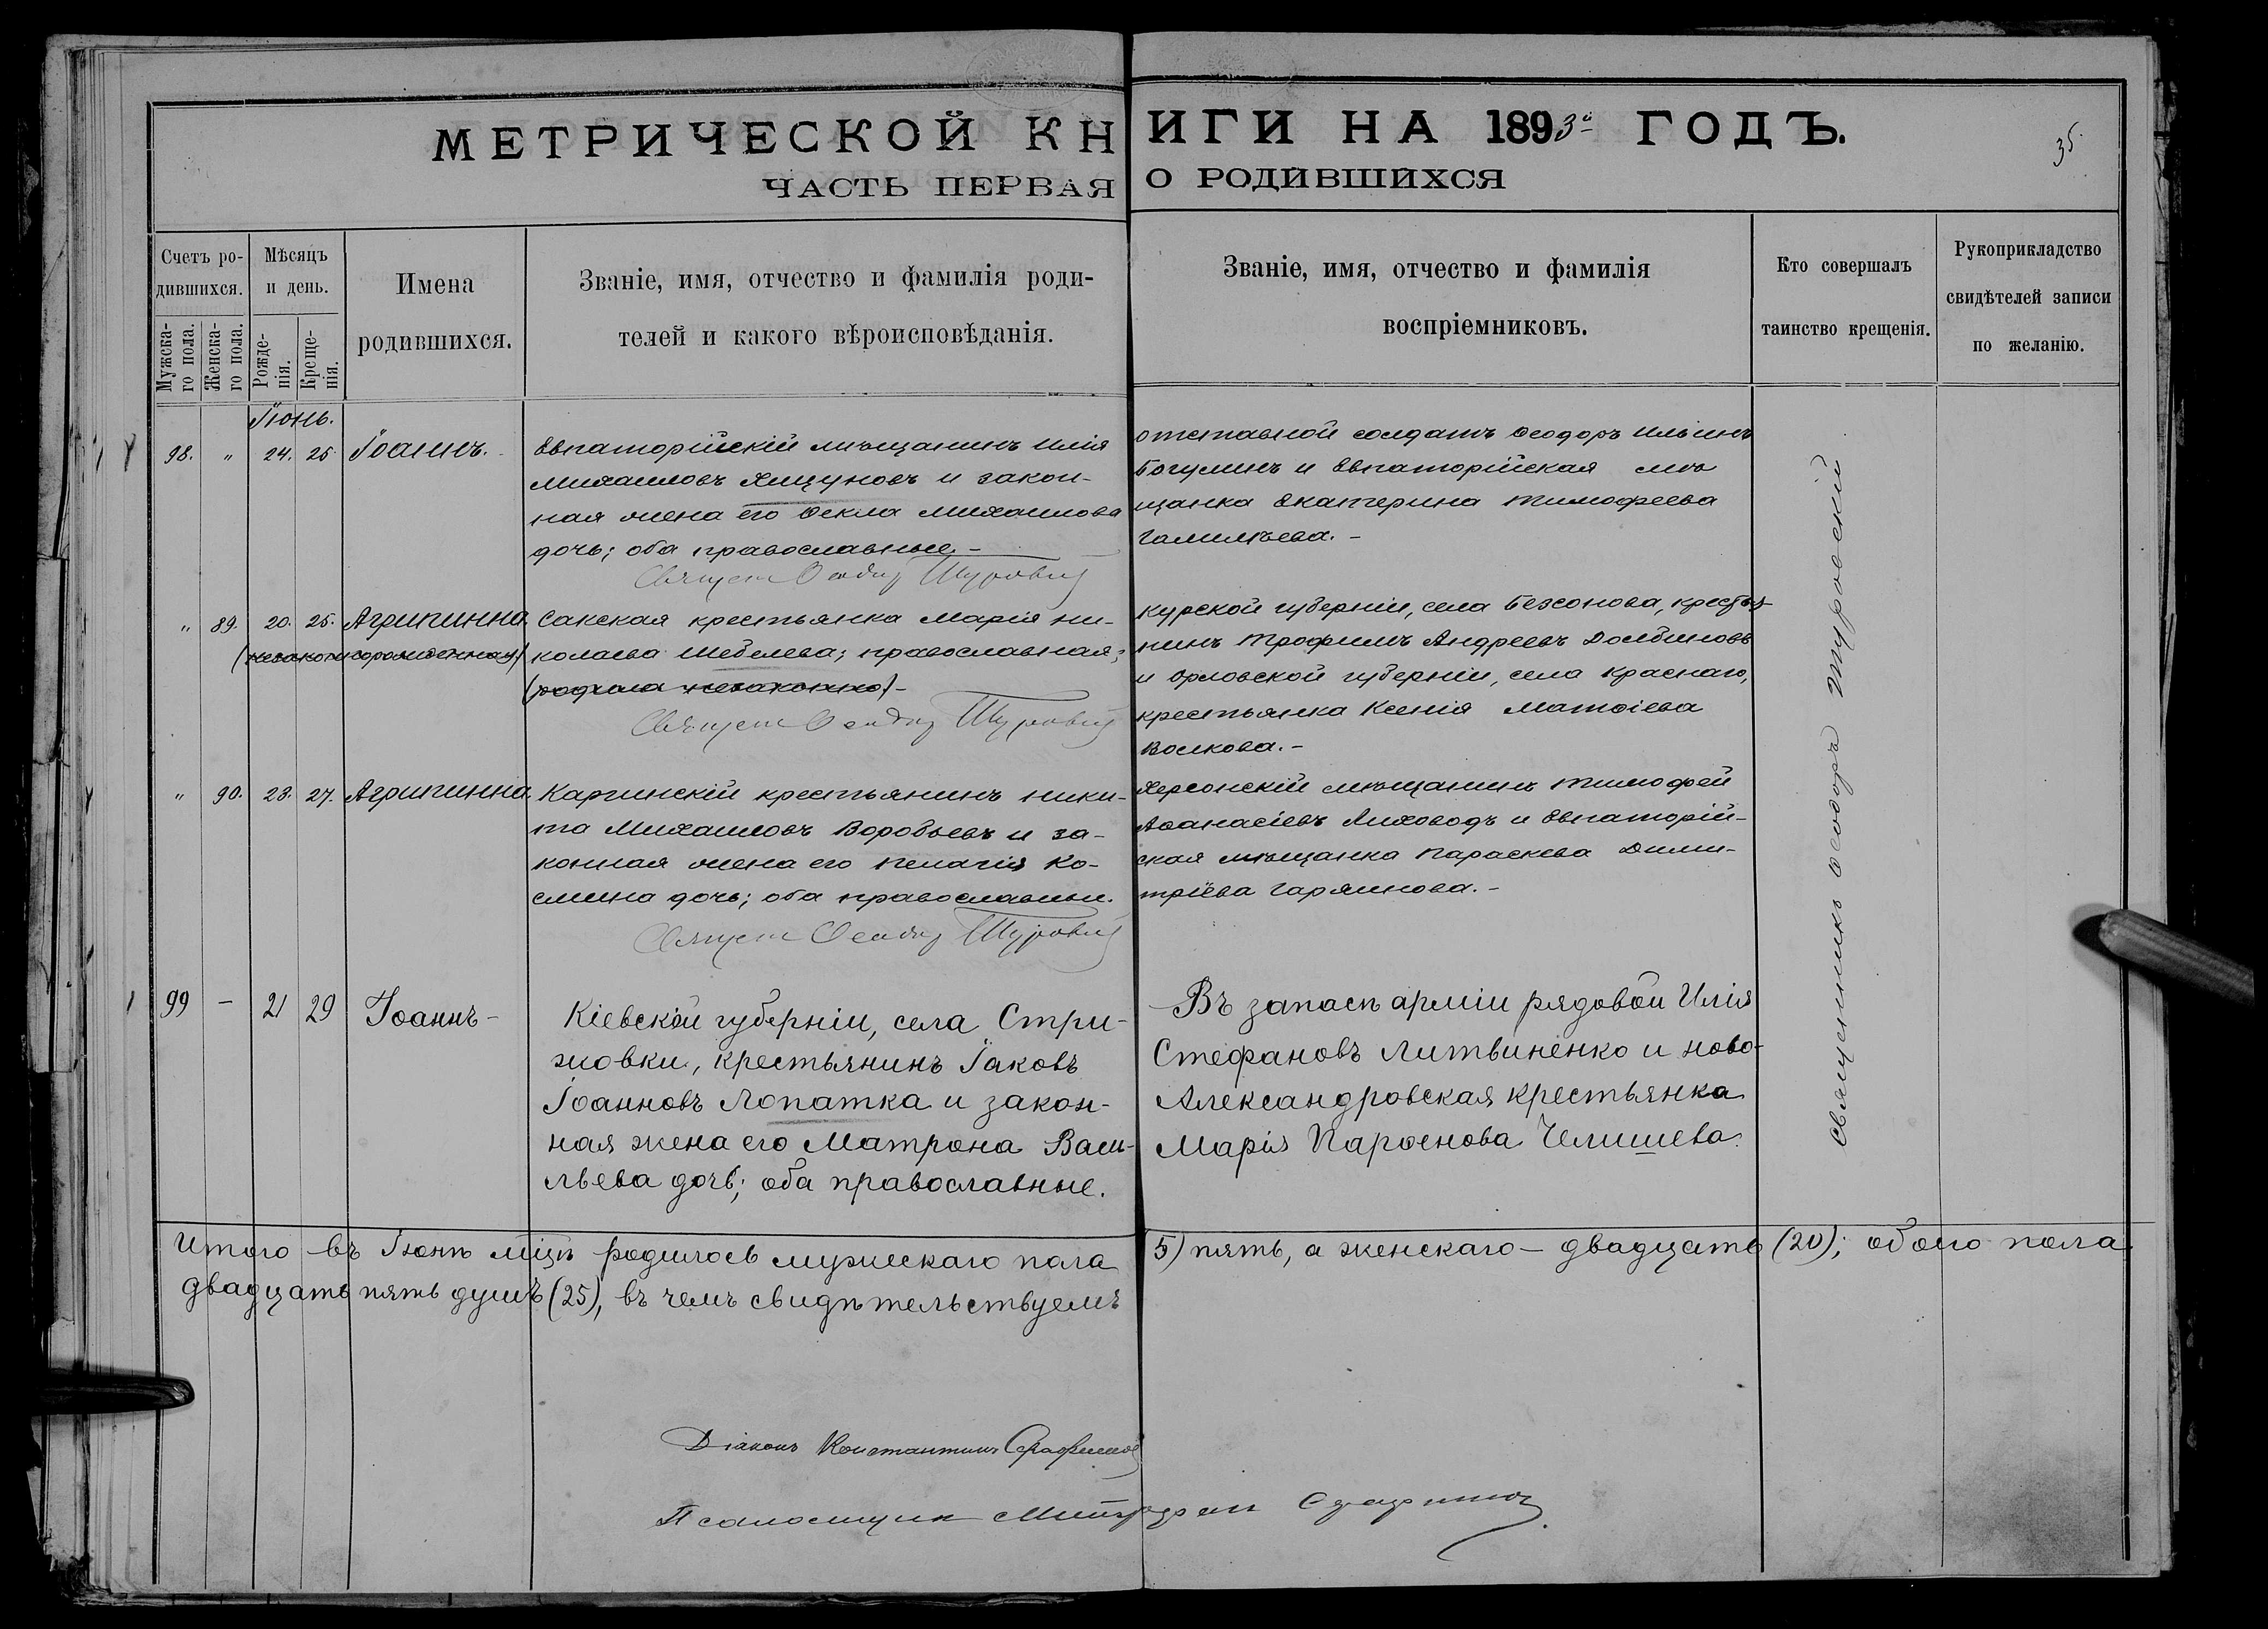 МЕТРИЧЕСКОЙ КНИГИ НА 1893й ГОДЪ.
35
ЧАСТЬ ПЕРВАЯ О РОДИВШИХСЯ
Счетъ ро-
дившихся.
Мужска-
го пола.
Женска-
го пола.
Мѣсяцъ
и день.
Рожде-
нія.
Креще-
нія.
Имена
родившихся.
Званіе, имя, отчество и фамилія роди-
телей и какого вѣроисповѣданія.
Званіе, имя, отчество и фамилія
воспріемниковъ.
Кто совершалъ
таинство крещенія.
Рукоприкладство
свидѣтелей записи
по желанію.
Іюнь.
98. " 24. 25. Іоаннъ.
Евпаторійскій мѣщанинъ Илія
Михаиловъ Хицуновъ и закон-
ная жена его Ѳекла Михаилова
дочь; оба православные.-
Священ Ѳеодор Туровскій
отставной солдатъ Ѳеодоръ Ильинъ
Богулинъ и Евпаторійская мѣ
щанка Екатерина Тимофеева
Галилѣева.-
" 89. 20. 25. Агрипинна.
(незаконнорожденная)
Сакская крестьянка Марія Ни-
колаева Шебелева; православная;
(родила незаконно)-
Священ Ѳеодор Туровскій
Курской губерніи, села Безсонова, крестья-
нинъ Трофимъ Андреевъ Долбиновъ
и Орловской губерніи, села Краснаго,
крестьянка Ксенія Матѳіева
Волкова.-
" 90. 23. 27. Агрипинна.
Каргинскій крестьянинъ Ники-
та Михаиловъ Воробьевъ и за-
конная жена его Пелагія Ко-
смина дочь; оба православные.
Священ Ѳеодор Туровскій
Херсонскій мѣщанинъ Тимофей
Аѳанасіевъ Лиховодъ и Евпаторій-
ская мѣщанка Параскева Дими-
тріева Гаряинова.-
99 - 21 29 Іоаннъ-
Кіевской губерніи, села Стри-
жовки, крестьянинъ Іаковъ
Іоанновъ Лопатка и закон-
ная жена его Матрона Васи-
льева дочь; оба православные.
Въ запасѣ арміи рядовой Илія
Стефановъ Литвиненко и ново-
Александровская крестьянка
Марія Парѳенова Челишева.
Священникъ Ѳеодоръ Туровскій
Итого въ Іюнѣ мѣцѣ родилось мужескаго пола 5) пять, а женскаго - двадцать (20); обоего пола
двадцать пять душъ (25), въ чемъ свидѣтельствуемъ
Діаконъ Константинъ Серафимов
Псаломщик Митрофан